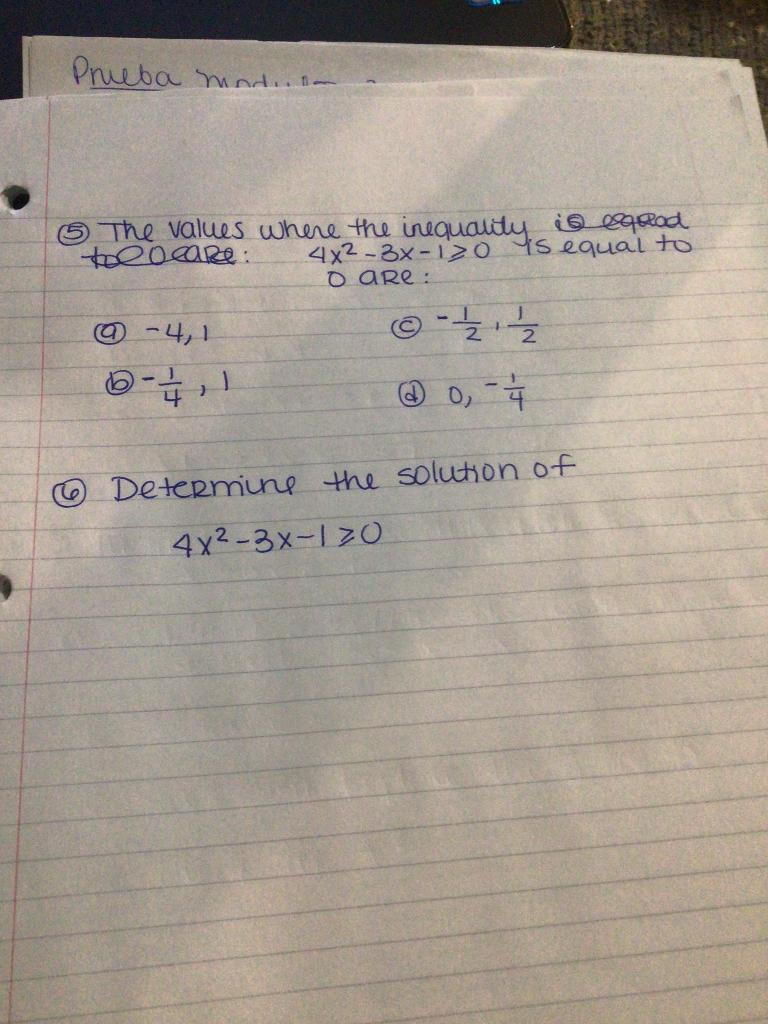 Prueba
⑤ The values where the inequality
4x² -3x -1 ≥ 0 is equal to
0 are:
ⓐ -4, 1 ⓒ -1/2, 1/2
ⓑ -1/4, 1 ⓓ 0, -1/4
⑥ Determine the solution of
4x² -3x -1 ≥ 0